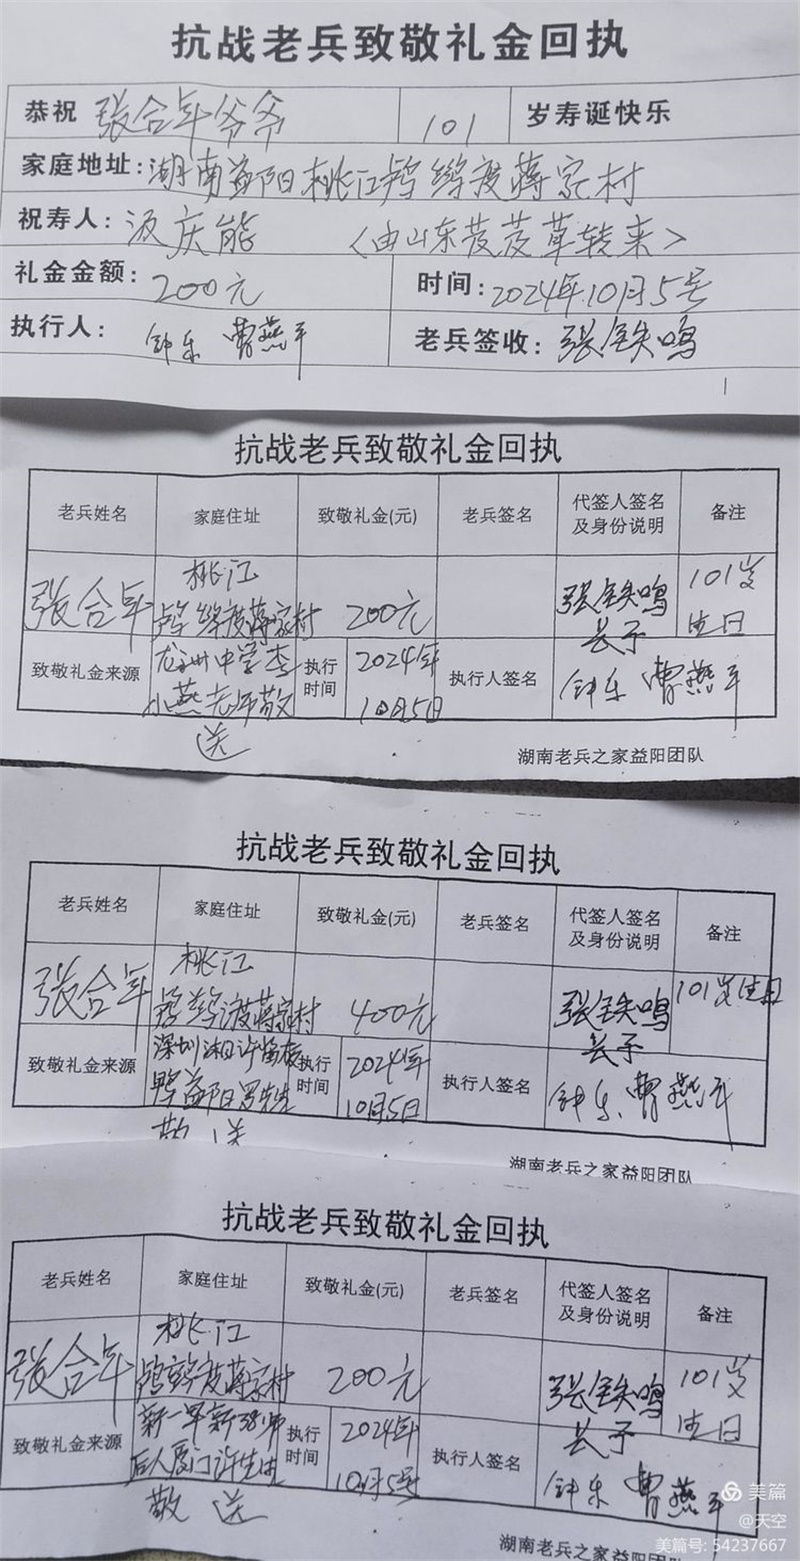 抗战老兵致敬礼金回执
恭祝 张合年爷爷 101 岁寿诞快乐
家庭地址:湖南益阳桃江鸬鹚渡蒋家村
祝寿人: 庆能 〈由山东芨芨草转来〉
礼金金额: 200元 时间: 2024年10月5号
执行人: 钟乐 曹燕平 老兵签收: 张铁鸣
抗战老兵致敬礼金回执
老兵姓名 家庭住址 致敬礼金(元) 老兵签名 代签人签名及身份说明 备注
张合年 桃江鸬鹚渡蒋家村 200元 张铁鸣 长子 101岁生日
致敬礼金来源 龙洲中学李小燕老师敬送 执行时间 2024年10月5日 执行人签名 钟乐 曹燕平
湖南老兵之家益阳团队
抗战老兵致敬礼金回执
老兵姓名 家庭住址 致敬礼金(元) 老兵签名 代签人签名及身份说明 备注
张合年 桃江鸬鹚渡蒋家村 400元 张铁鸣 长子 101岁生日
致敬礼金来源 深圳 益阳 敬送 执行时间 2024年10月5日 执行人签名 钟乐、曹燕平
湖南老兵之家益阳团队
抗战老兵致敬礼金回执
老兵姓名 家庭住址 致敬礼金(元) 老兵签名 代签人签名及身份说明 备注
张合年 桃江鸬鹚渡蒋家村 200元 张铁鸣 长子 101岁生日
致敬礼金来源 新一军新38师后人厦门许先生敬送 执行时间 2024年10月5号 执行人签名 钟乐 曹燕平
湖南老兵之家益阳团队
美篇
@天空
美篇号: 54237667